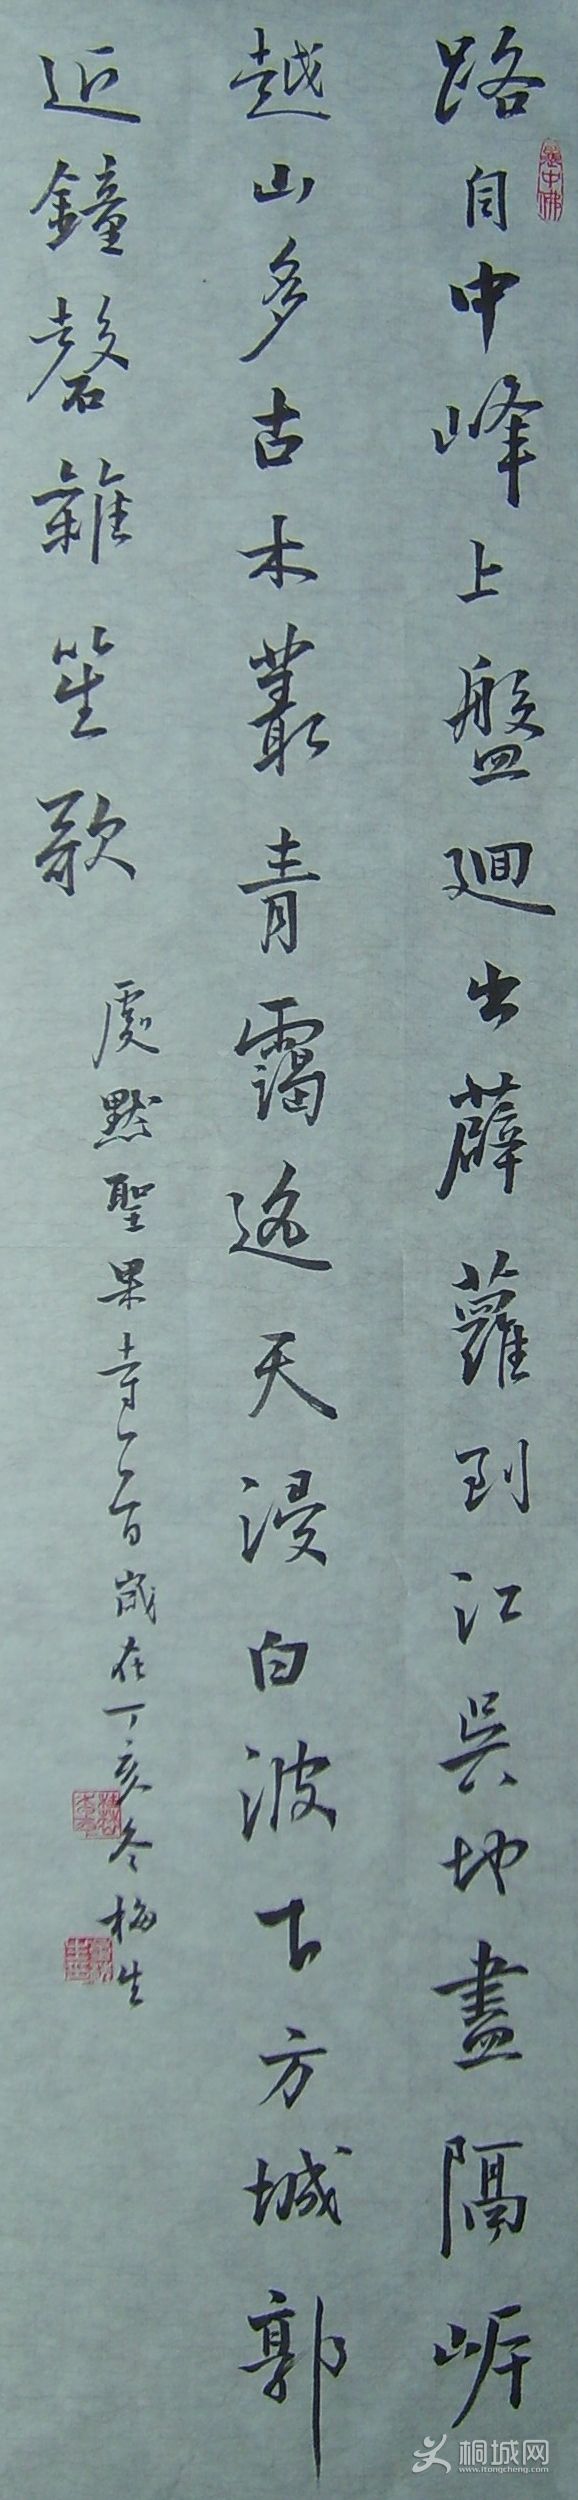 路自中峰上盤迴出薜蘿到江吳地盡隔岸
越山多古木叢青靄遙天浸白波下方城郭
近鐘磬雜笙歌
處默聖果寺一首歲在丁亥冬梅生
桐城网
www.itongcheng.com